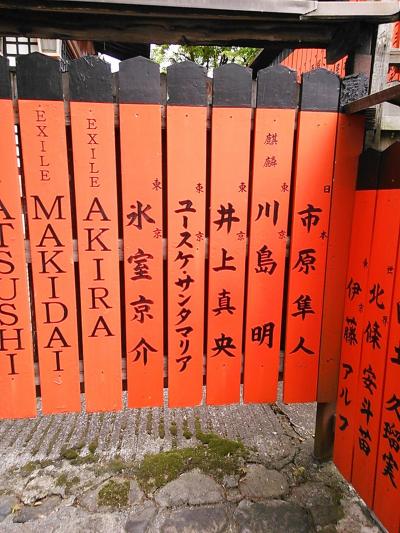 ATSUSHI
EXILE
MAKIDAI
EXILE
AKIRA
東京
氷室京介
東京
ユースケ・サンタマリア
東京
井上真央
麒麟
川島 明
東京
日本
市原隼人
伊藤アルフ
北條安斗苗
久瑠実